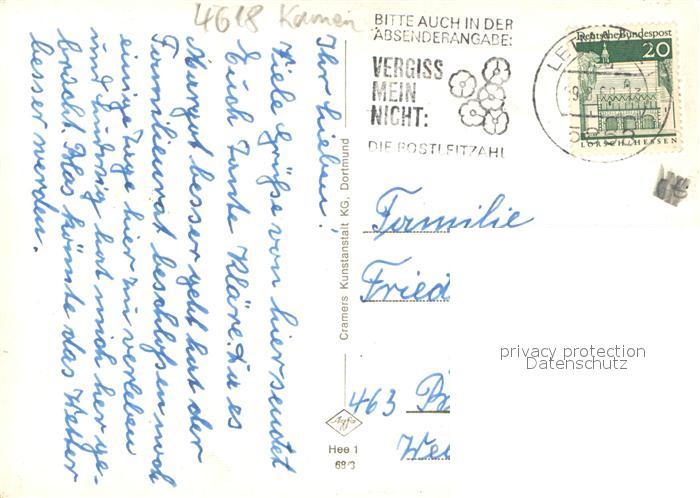 4618 Kamen
BITTE AUCH IN DER
ABSENDERANGABE:
VERGISS
MEIN
NICHT:
DIE POSTLEITZAHL
Deutsche Bundespost
20
LORSCH/HESSEN
Ihr Lieben!
Viele Grüße von hier sendet
Euch Tante Kläre. Da es
Margot besser geht hat der
Familienrat beschloßen noch
einige Tage hier zu verleben
und Ludwig hat mich her ge-
bracht. Was könnte das Wetter
besser werden.
Cramers Kunstanstalt KG. Dortmund
Agfa
Hee 1
68/3
Familie
Fried
463
privacy protection
Datenschutz